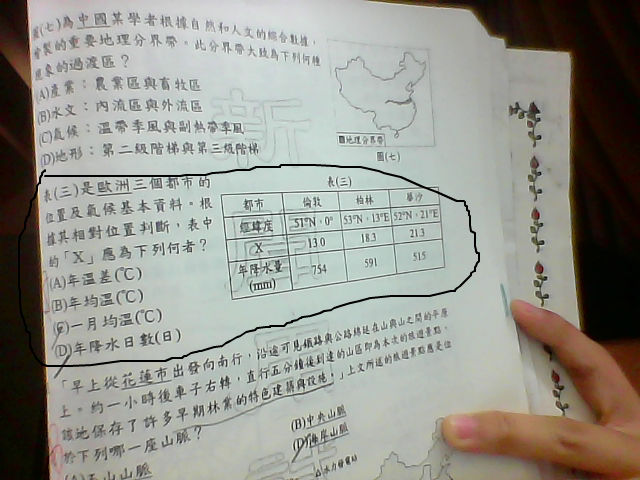 圖(七)為中國某學者根據自然和人文的綜合數據，
繪製的重要地理分界帶。此分界帶大致為下列何種
現象的過渡區？
(A)產業：農業區與畜牧區
(B)水文：內流區與外流區
(C)氣候：溫帶季風與副熱帶季風
(D)地形：第二級階梯與第三級階梯
地理分界帶
圖(七)
表(三)是歐洲三個都市的
位置及氣候基本資料。根
據其相對位置判斷，表中
的「X」應為下列何者？
(A)年溫差(℃)
(B)年均溫(℃)
(C)一月均溫(℃)
(D)年降水日數(日)
表(三)
都市 倫敦 柏林 華沙
經緯度 51°N，0° 53°N，13°E 52°N，21°E
X 13.0 18.3 21.3
年降水量(mm) 754 591 515
「早上從花蓮市出發向南行，沿途可見鐵路與公路綿延在山與山之間的平原
上。約一小時後車子右轉，直行五分鐘後到達的山區即為本次的旅遊景點，
該地保存了許多早期林業的特色建築與設施。」上文所述的旅遊景點應是位
於下列哪一座山脈？
(A)玉山山脈
(B)中央山脈
(D)海岸山脈
水力發電站
新